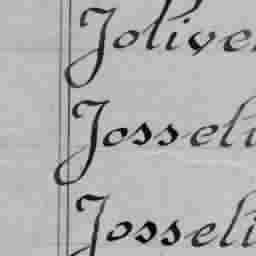 Jolive
Josseli
Josseli